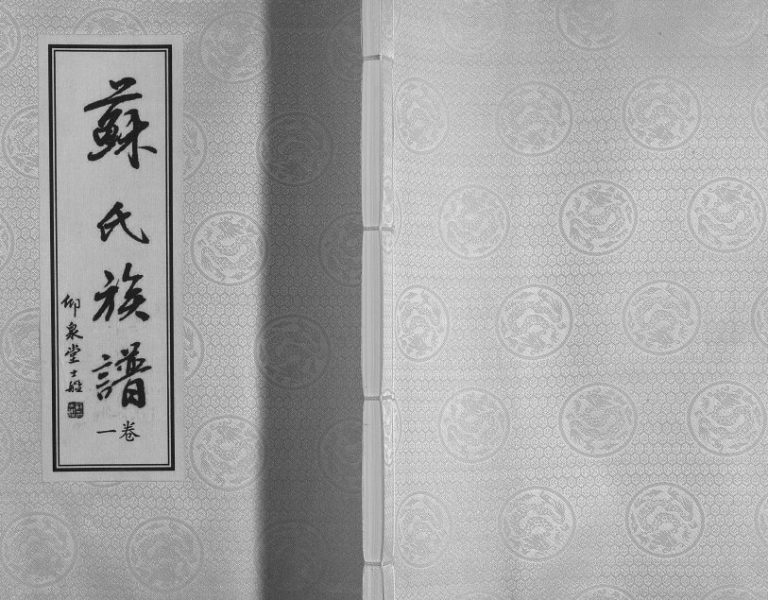 蘇氏族譜
卷一
仰泉堂